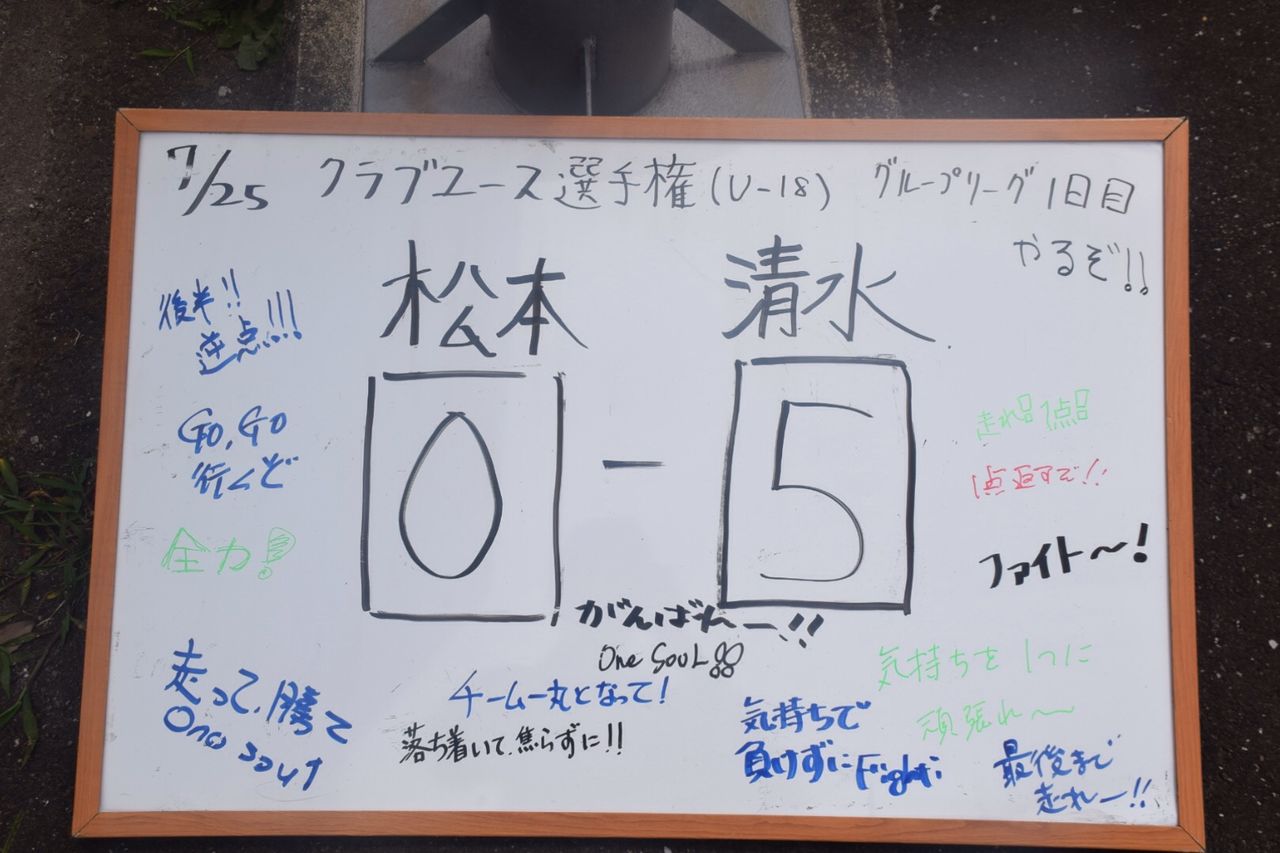 7/25 クラブユース選手権(U-18) グループリーグ1日目
やるぞ!!
松本 清水
0 - 5
後半!!
逆点!!!
GO, GO
行くぞ
全力!
走って、勝て
One soul
走れ!!1点!!
1点返すぞ!!
ファイト〜!
がんばれー!!
One SOUL!!
チーム一丸となって!
落ち着いて、焦らずに!!
気持ちで
負けずにFight!
気持ちを1つに
頑張れ〜
最後まで
走れー!!